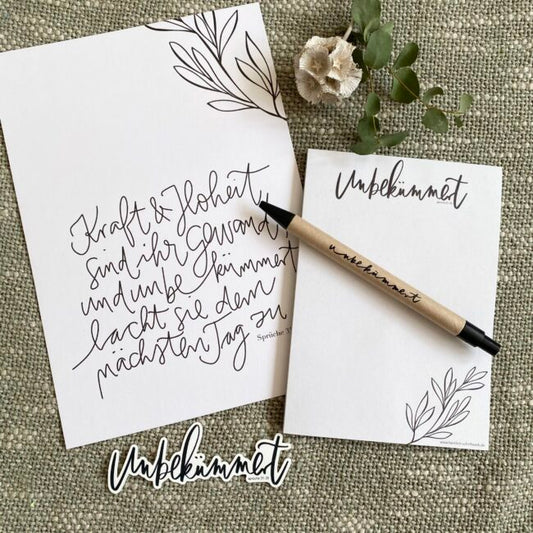 Kraft & Hoheit
sind ihr Gewand,
und unbekümmert
lacht sie dem
nächsten Tag zu
Sprüche 31
Unbekümmert
unbekümmert
Unbekümmert